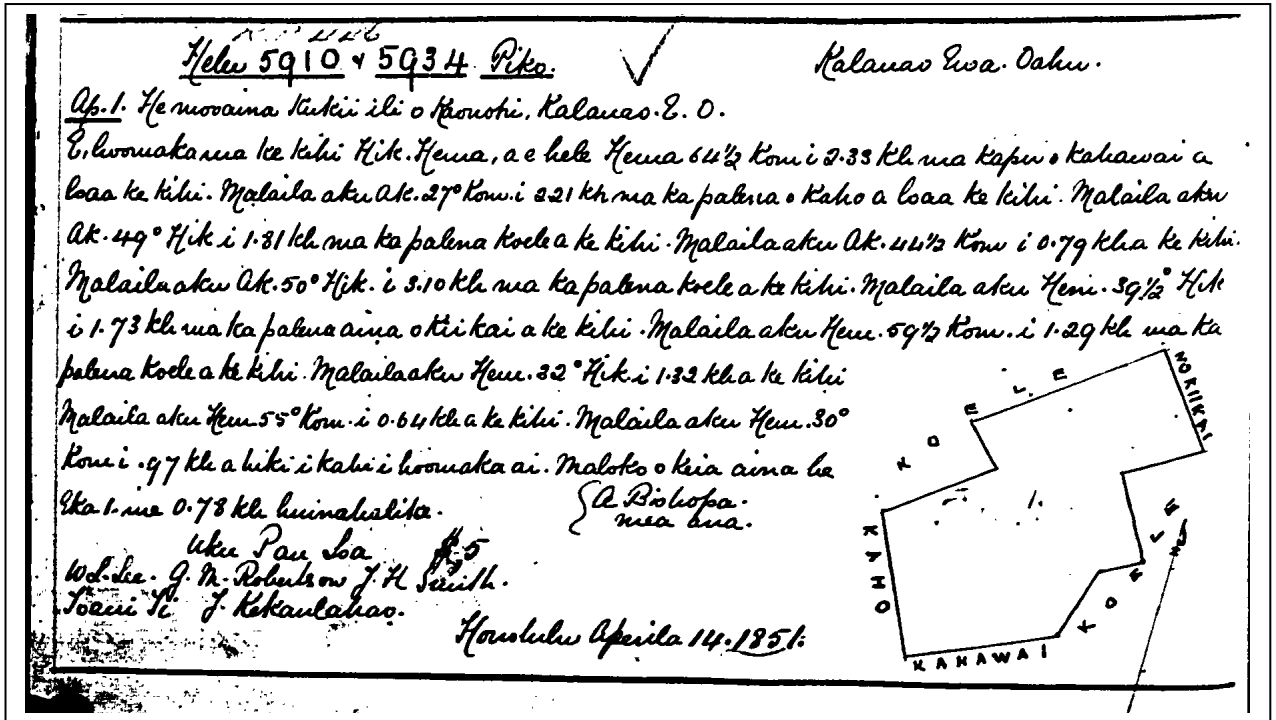 Helu 5910 & 5934 Piko.
Kalauao Ewa. Oahu.
Ap.1. He mooaina Kukii ili o Kaonohi, Kalauao. E. O.
E, hoomaka ma ke kihi Hik. Hema, a e hele Hema 64½ Kom i 2.33 Kh ma kapa o kahawai a
loaa ke kihi. Malaila aku Ak. 27° Kom. i 2.21 kh ma ka palena o Kaho a loaa ke kihi. Malaila aku
Ak. 49° Hik i 1.81 kh ma ka palena Koele a ke kihi. Malaila aku Ak. 44½ Kom i 0.79 kh a ke kihi.
Malaila aku Ak. 50° Hik. i 3.10 Kh ma ka palena koele a ke kihi. Malaila aku Hem. 39½° Hik
i 1.73 kh ma ka palena aina o Kiikai a ke kihi. Malaila aku Hem. 59½ Kom. i 1.29 kh ma ka
palena Koele a ke kihi. Malaila aku Hem. 32° Hik. i 1.32 kh a ke kihi
Malaila aku Hem 55° Kom. i 0.64 kh a ke kihi. Malaila aku Hem. 30°
Kom i .97 kh a hiki i kahi i hoomaka ai. Maloko o keia aina he
Eka 1. me 0.78 kh huinahalike.
{A Bishopa.
mea ana.
Uku Pau Loa $5
W. L. Lee. G. M. Robertson J. H Smith.
Ioani Ii J. Kekaulahao.
Honolulu Aperila 14. 1851.
KOELE
NO KIIKAI
1.
KAHO
KOELE
KAHAWAI